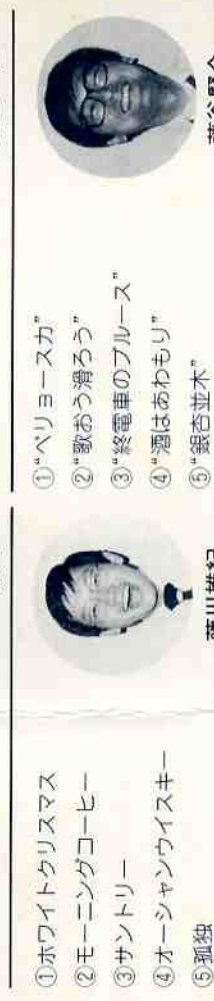 ①ホワイトクリスマス
②モーニングコーヒー
③サントリー
④オーシャンウイスキー
⑤孤独
①“ベリョースカ”
②“歌おう滑ろう”
③“終電車のブルース”
④“酒はあわもり”
⑤“銀杏並木”